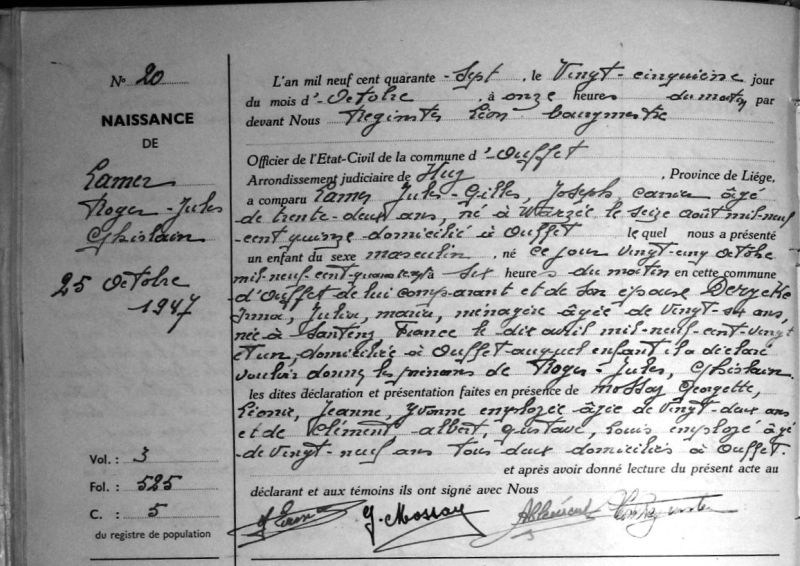 N° 20
NAISSANCE
DE
Lamer
Roger-Jules
Ghislain
25 Octobre
1947
Vol. : 3
Fol. : 525
C. : 5
du registre de population
L'an mil neuf cent quarante-sept, le Vingt-cinquième jour
du mois d'Octobre, à onze heures du matin par
devant Nous Léon bourgmestre
Officier de l'Etat-Civil de la commune d'Ouffet
Arrondissement judiciaire de Huy, Province de Liége,
a comparu Lamer Jules-Gilles, Joseph, âgé
de trente-deux ans, né à Warzée le seize août mil-neuf
-cent quinze domicilié à Ouffet le quel nous a présenté
un enfant du sexe masculin, né ce jour vingt-cinq octobre
mil-neuf-cent-quarante-sept à six heures du matin en cette commune
d'Ouffet de lui comparant et de son épouse
Julia, Maria, ménagère âgée de vingt-six ans,
née à Santeny France le dix avril mil-neuf-cent-vingt
et un, domiciliée à Ouffet-auquel enfant il a déclaré
vouloir donner les prénoms de Roger-Jules, Ghislain.
les dites déclaration et présentation faites en présence de Mossay Georgette,
Léonie, Jeanne, Yvonne employée âgée de vingt-deux ans
et de Clément Albert, Gustave, Louis employé âgé
de vingt-neuf ans tous deux domiciliés à Ouffet.
et après avoir donné lecture du présent acte au
déclarant et aux témoins ils ont signé avec Nous
G. Mossay